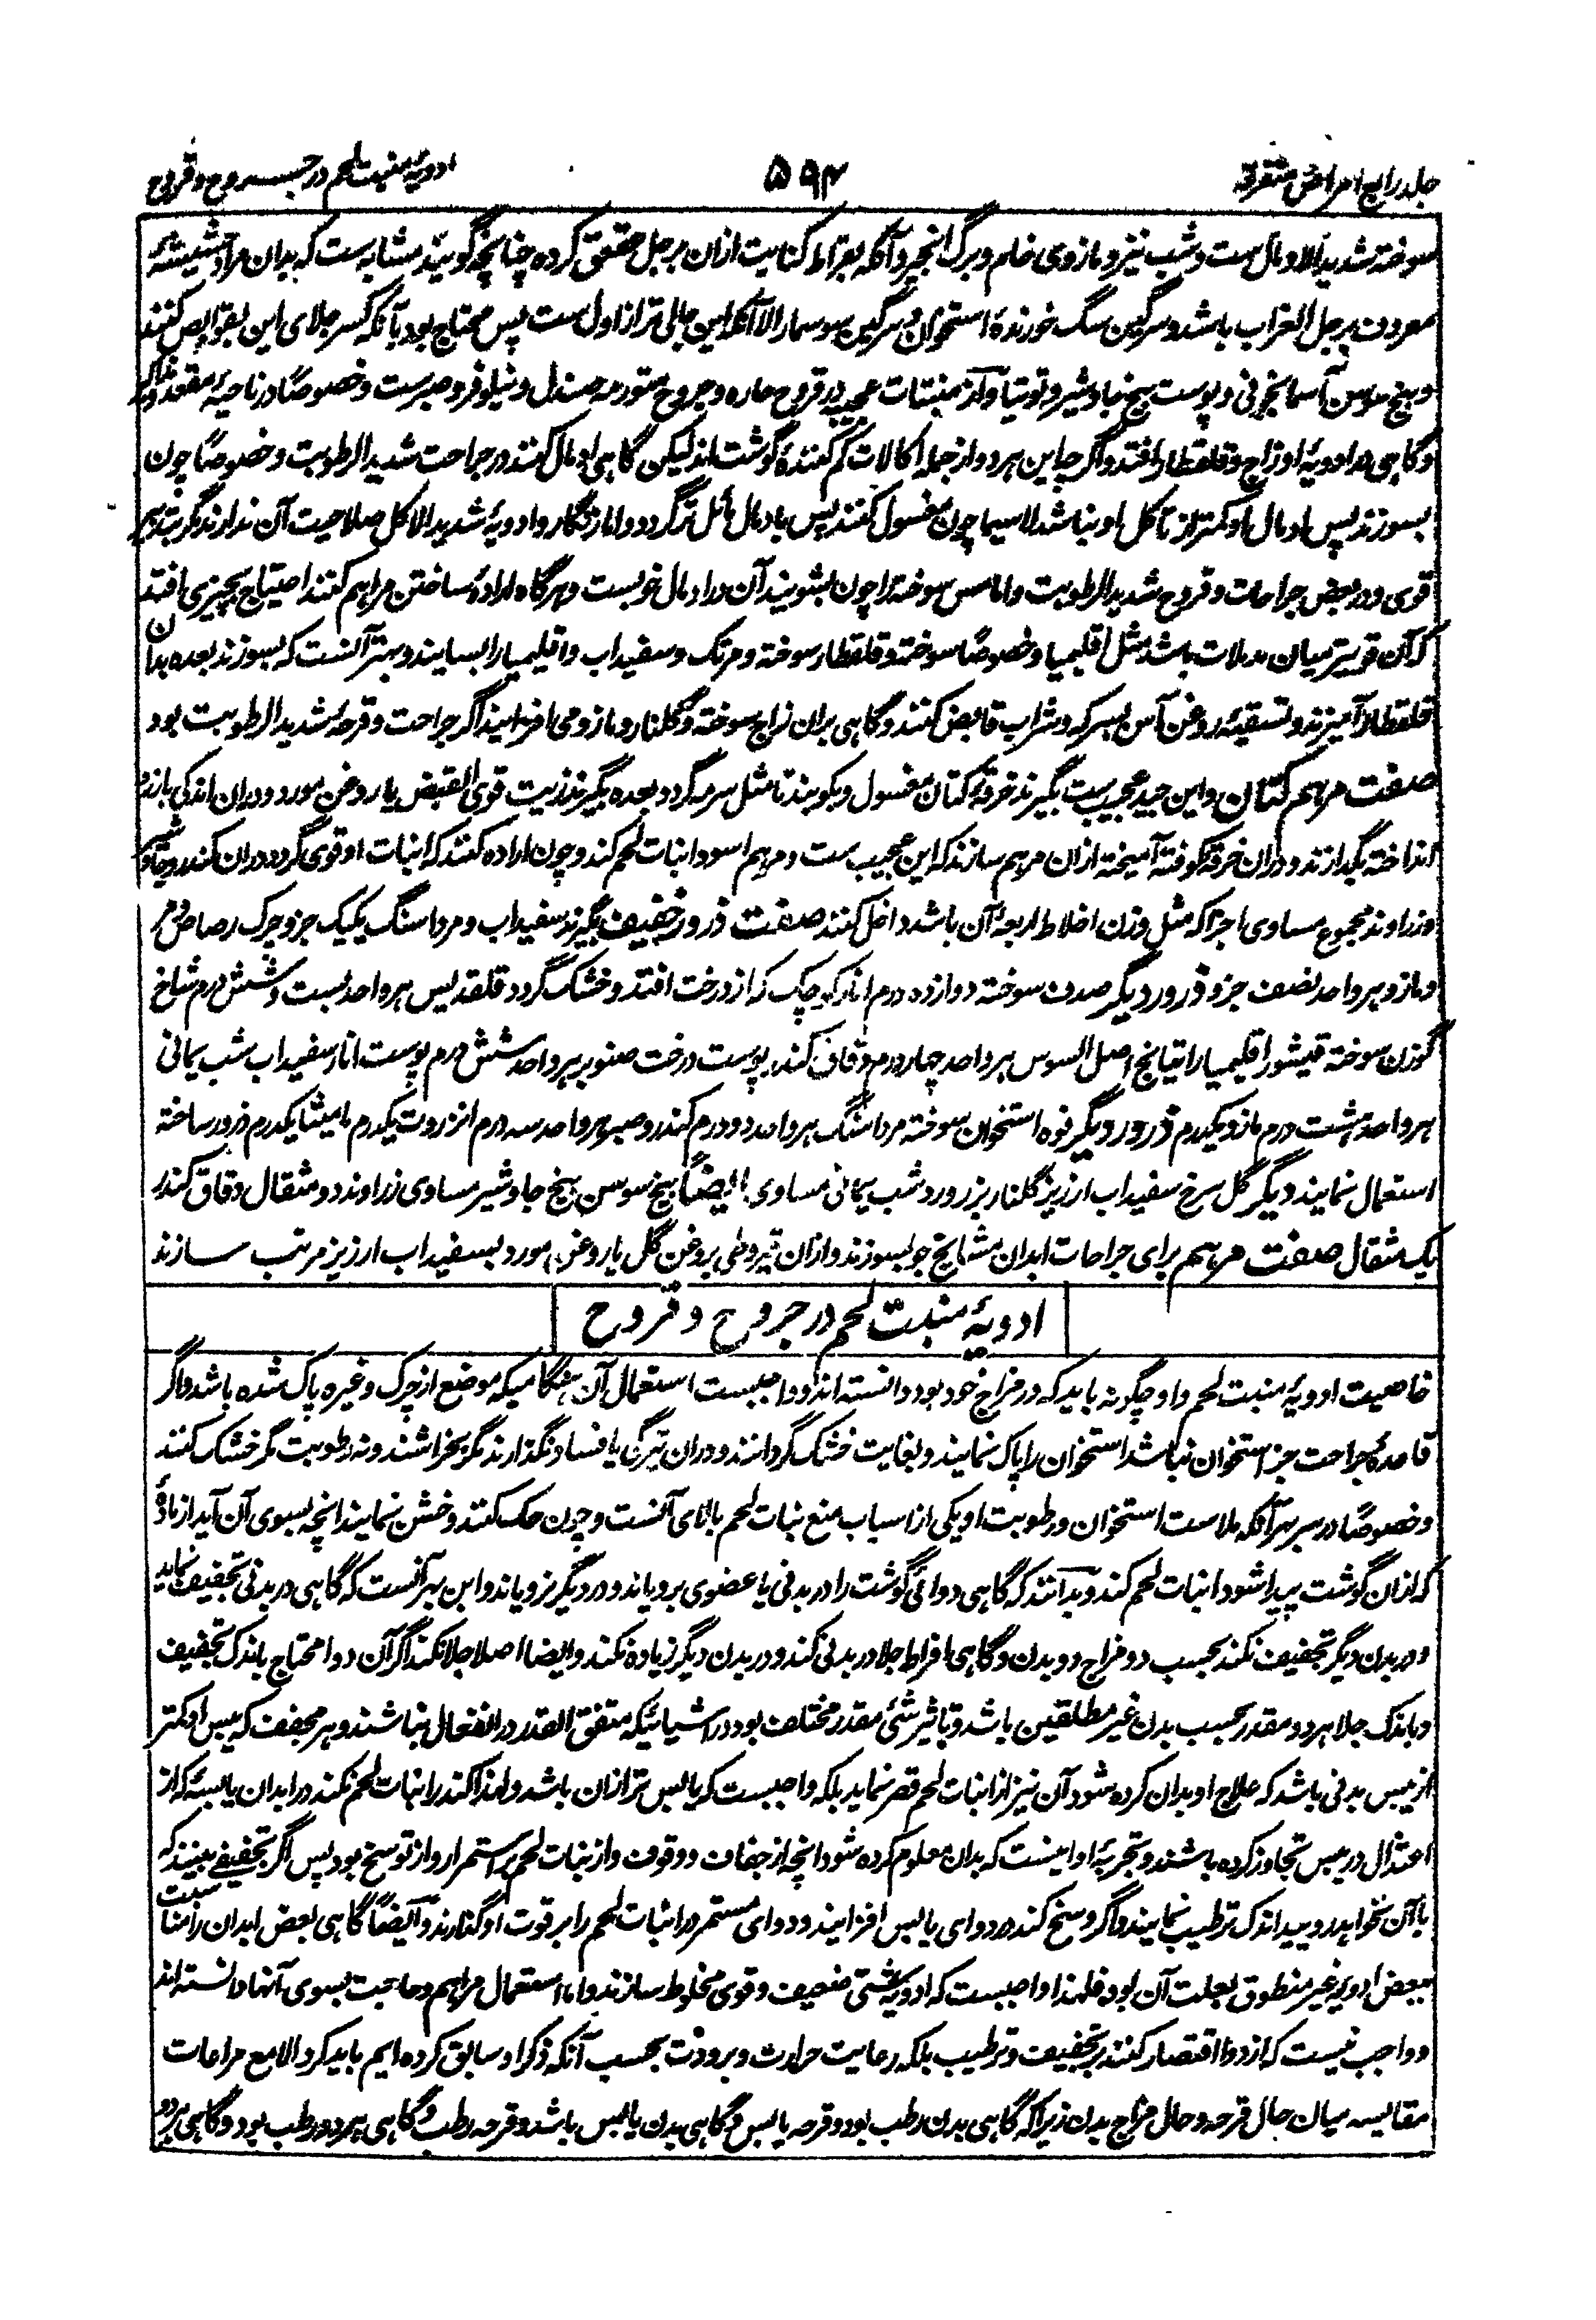 جلد رابع امراض متفرقه
۵۹۴
ادویهٔ منبت لحم در جروح و قروح
سوخته شدید الادمال ست و شب نیز و مازوی خام و برگ انجیر و آنکه بقراط کنایت ازان برجل عقعق کرده چنانچه گویند مشابه ست که بدان مراد حشیشهٔ
معروف برجل الغراب باشد و سرگین سگ خورندهٔ استخوان و سرگین سوسمار الا آنکه این جالی تر از اول ست پس محتاج بود بآنکه کسر جلای این بقوابض کنند
و بیخ سوسن آسمانجونی و پوست بیخ جاوشیر و توتیا و از منبتات عجیبه در قروح حاره و جروح متورمه صندل و نیلوفر و صبرست و خصوصًا در ناحیهٔ مقعد و مذاکیر
و گاهی در ادویهٔ او زاج و قلقطار افتد و اگرچه این هر دو از جمله اکالات کم کنندهٔ گوشت اند لیکن گاهی ادمال کنند در جراحت شدید الرطوبت و خصوصًا چون
بسوزند پس ادمال او کمتر از تأکل او نباشد لاسیما چون مغسول کنند پس بادمال مائل تر گردد و اما زنگار و ادویهٔ شدید الاکل صلاحیت آن ندارند مگر بتدبیر
قوی و در بعض جراحات و قروح شدید الرطوبت و اما مس سوخته را چون بشویند آن در ادمال خوبست و هرگاه ارادهٔ ساختن مراهم کنند احتیاج بچیزی افتد
که آن قویتر میان مدملات باشد مثل اقلیمیا و خصوصًا سوخته و قلقطار سوخته و مرتک و سفیداب و اقلیمیا را بسایند و بهتر آنست که بسوزند بعده بدان
قلقطار آمیزند و تسقیهٔ روغن آس بسرکه و شراب قابض کنند و گاهی بران زاج سوخته و گلنار و مازو می افزایند اگر جراحت و قرحه شدید الرطوبت بود
صفت مرهم کتان و این جید عجیب ست بگیرند خرقهٔ کتان مغسول و بکوبند تا مثل سرمه گردد بعده بگیرند زیت قوی القبض یا روغن مورد و دران اندکی بارزد
انداخته بگدازند و دران خرقه کوفته آمیخته ازان مرهم سازند که این عجیب ست و مرهم اسود انبات لحم کند و چون اراده کنند که انبات او قوی گردد دران کندر و جاوشیر
و زراوند مجموع مساوی اجزا که مثل وزن اخلاط اربعهٔ آن باشد داخل کنند صفت ذرور خفیف بگیرند سفیداب و مرداسنگ یک یک جزو چرک رصاص و مر
و مازو هر واحد نصف جزو ذرور دیگر صدف سوخته دوازده درم انار کوچک که از درخت افتد و خشک گردد قلقدیس هر واحد بست و شش درم شاخ
گوزن سوخته قیشور اقلیمیا راتیانج اصل السوس هر واحد چهار درم دقاق کندر پوست درخت صنوبر هر واحد شش درم پوست انار سفیداب شب یمانی
هر واحد هشت درم مازو یکدرم ذرور دیگر فوه استخوان سوخته مرداسنگ هر واحد دو درم کندر و صبر هر واحد سه درم انزروت یکدرم مامیثا یکدرم ذرور ساخته
استعمال نمایند دیگر گل سرخ سفیداب ارزیز گلنار بزر ورد شب یمانی مساوی ایضًا بیخ سوسن بیخ جاوشیر مساوی زراوند دو مثقال دقاق کندر
یک مثقال صفت مرهم برای جراحات ابدان مشایخ جو بسوزند و ازان قیروطی بروغن گل یا روغن مورد بسفیداب ارزیز مرتب سازند
ادویهٔ منبت لحم در جروح و قروح
خاصیت ادویهٔ منبت لحم و او چگونه باید که در مزاج خود بود دانسته اند و واجبست استعمال آن هنگامیکه موضع از چرک و غیره پاک شده باشد و اگر
قاعدهٔ جراحت جز استخوان نباشد استخوان را پاک نمایند و بغایت خشک گردانند و دران تیرگی یا فساد نگذارند مگر بخراشند و نه رطوبت مگر خشک کنند
و خصوصًا در سر بهر آنکه ملاست استخوان و رطوبت او یکی از اسباب منع نبات لحم بالای آنست و چون حک کنند و خشن نمایند انچه بسوی آن آید از مادهٔ
که ازان گوشت پیدا شود انبات لحم کند و بدانند که گاهی دوائی گوشت را در بدنی یا عضوی برویاند و در دیگر نرویاند و این بهر آنست که گاهی در بدنی تجفیف نماید
و در بدن دیگر تجفیف نکند بحسب دو مزاج دو بدن و گاهی افراط جلا در بدنی کند و در بدن دیگر زیاده نکند و ایضا اصلا جلا نکند اگر آن دوا محتاج باندک تجفیف
و باندک جلا هر دو مقدر بحسب بدن غیر مطلقین باشد و تاثیر شئ مقدر مختلف بود در اشیائیکه متفق القدر در انفعال نباشند و هر مجفف که یبس او کمتر
از یبس بدنی باشد که علاج او بدان کرده شود آن نیز از انبات لحم قصر نماید بلکه واجبست که یابس تر ازان باشد و لهذا کندر انبات لحم نکند در ابدان یابسهٔ که از
اعتدال در یبس تجاوز کرده باشند و تجربهٔ او اینست که بدان معلوم کرده شود انچه از جفاف و وقوف و از نبات لحم بر استمرار و از توسخ بود پس اگر تجفیفی بینند که
با آن نخواهد رویید اندک ترطیب نمایند و اگر وسخ کند در دوای یابس افزایند و دوای مستمر در انبات لحم را بر قوت او گذارند و ایضًا گاهی بعض ابدان را مناسبت
ببعض ادویه غیر منطوق بعلت آن بود فلهذا واجبست که ادویهٔ شتی ضعیف و قوی مخلوط سازند و اما استعمال مراهم و حاجت بسوی آنها دانسته اند
و واجب نیست که از دوا اقتصار کنند بر تجفیف و ترطیب بلکه رعایت حرارت و برودت بحسب آنکه ذکر او سابق کرده ایم باید کرد الا مع مراعات
مقایسه میان حال قرحه و حال مزاج بدن زیراکه گاهی بدن رطب بود و قرحه یابس و گاهی بدن یابس باشد و قرحه رطب و گاهی هر دو رطب بود و گاهی هر دو